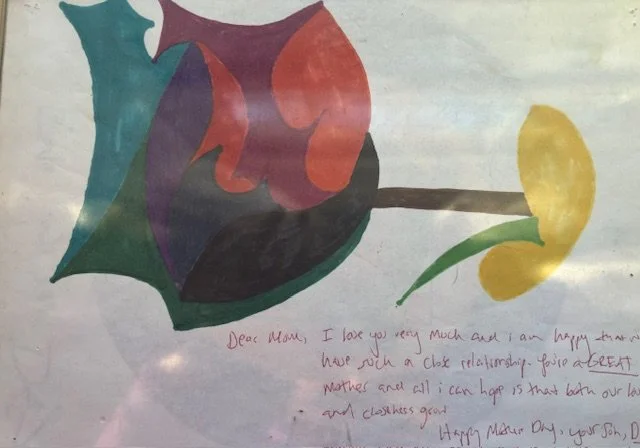 Dear Mom, I love you very much and i am happy that
have such a close relationship. You're a GREAT
mother and all i can hope is that both our
and closeness grow
Happy Mothers Day, your son,